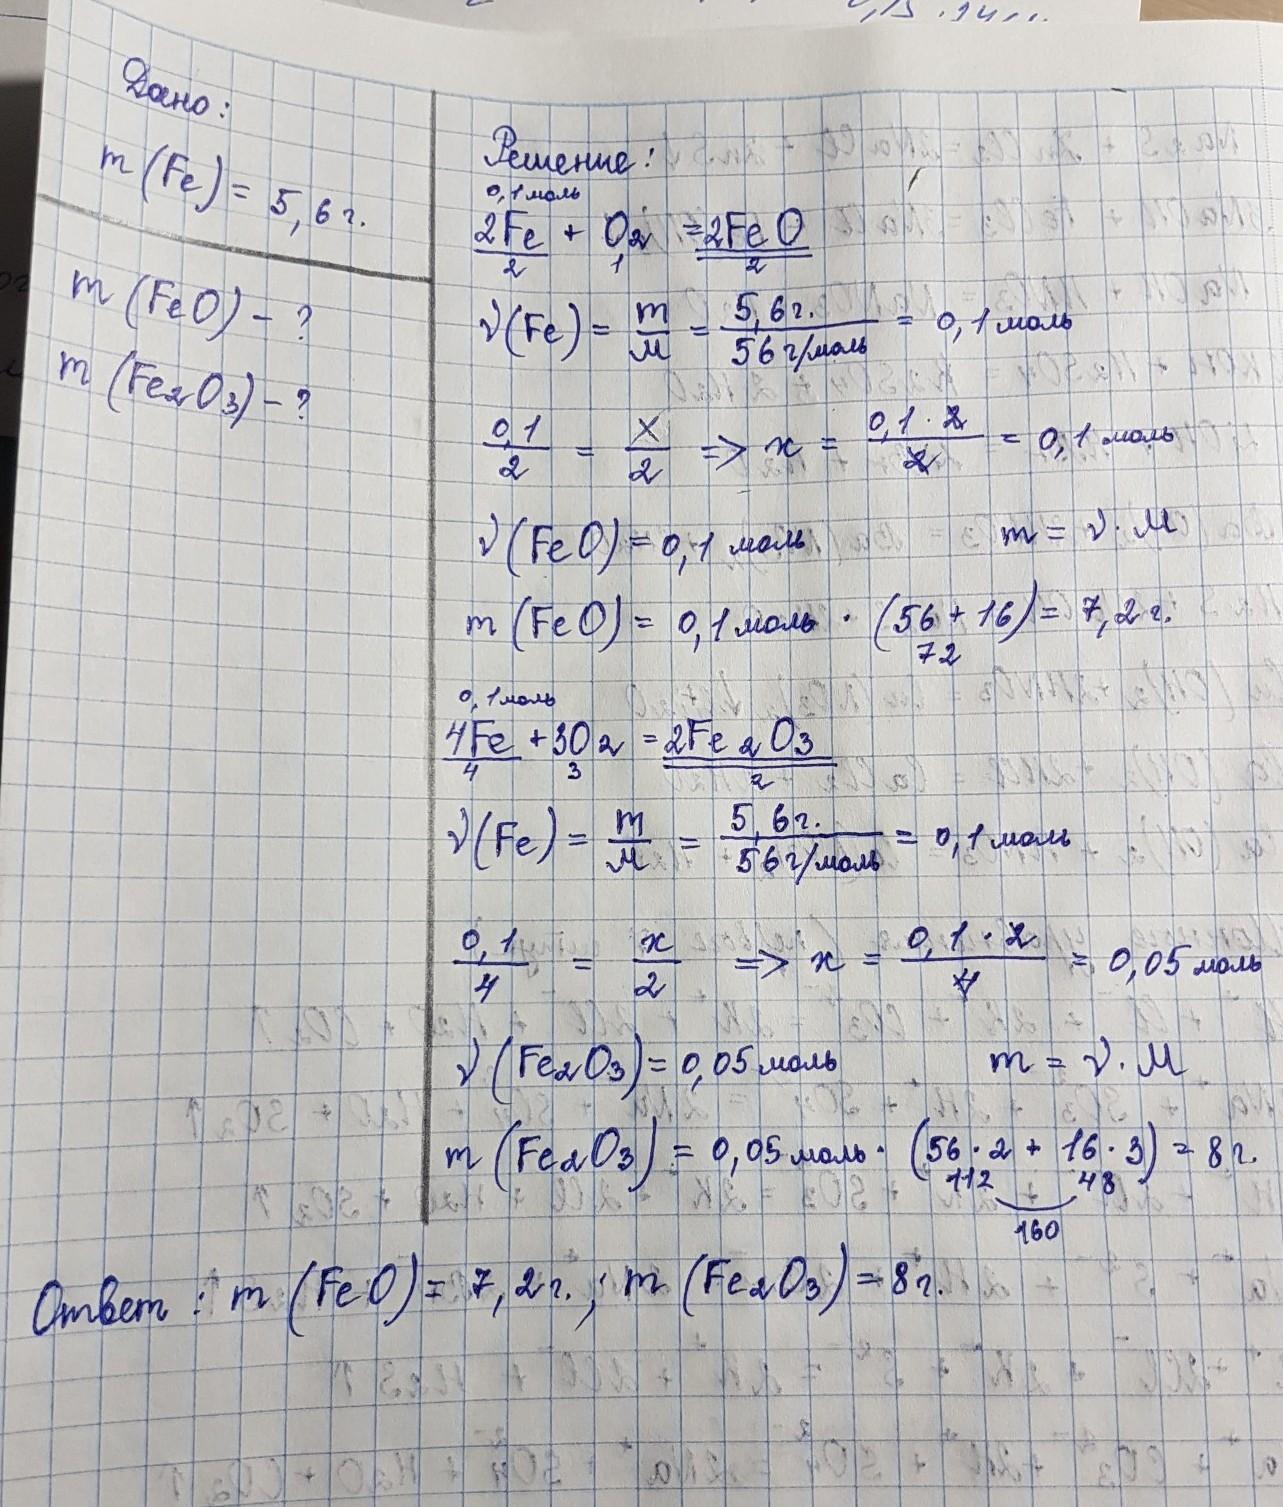 Дано:
m (Fe) = 5,6 г.
m (FeO) - ?
m (Fe2O3) - ?
Решение:
0,1 моль
2Fe + O2 = 2FeO
2 1 2
ν(Fe) = m/M = 5,6 г./56 г/моль = 0,1 моль
0,1/2 = x/2 => x = 0,1 · 2/2 = 0,1 моль
ν (FeO) = 0,1 моль m = ν · M
m (FeO) = 0,1 моль · (56 + 16) = 7,2 г.
72
0,1 моль
4Fe + 3O2 = 2Fe2O3
4 3 2
ν(Fe) = m/M = 5,6 г./56 г/моль = 0,1 моль
0,1/4 = x/2 => x = 0,1 · 2/4 = 0,05 моль
ν (Fe2O3) = 0,05 моль m = ν · M
m (Fe2O3) = 0,05 моль · (56 · 2 + 16 · 3) = 8 г.
112 48
160
Ответ : m (FeO) = 7,2 г. ; m (Fe2O3) = 8 г.